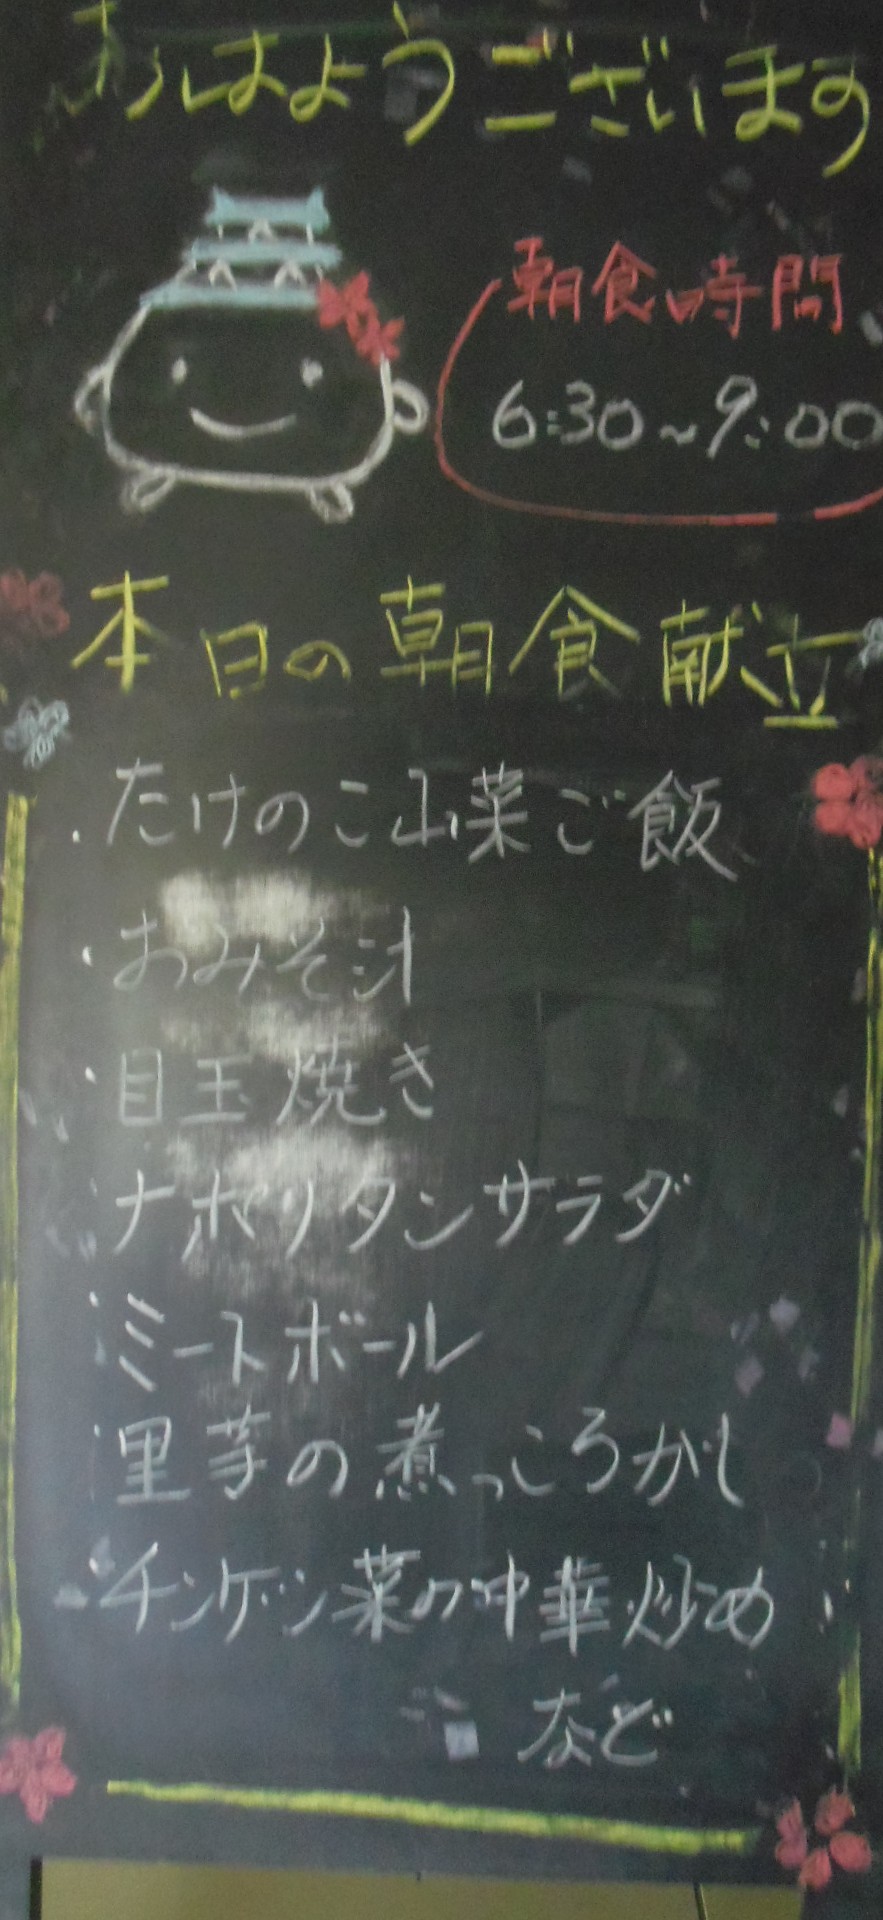 おはようございます
朝食時間
6:30~9:00
本日の朝食献立
・たけのこ山菜ご飯
・おみそ汁
・目玉焼き
・ナポリタンサラダ
・ミートボール
・里芋の煮っころがし
・チンゲン菜の中華炒め
など